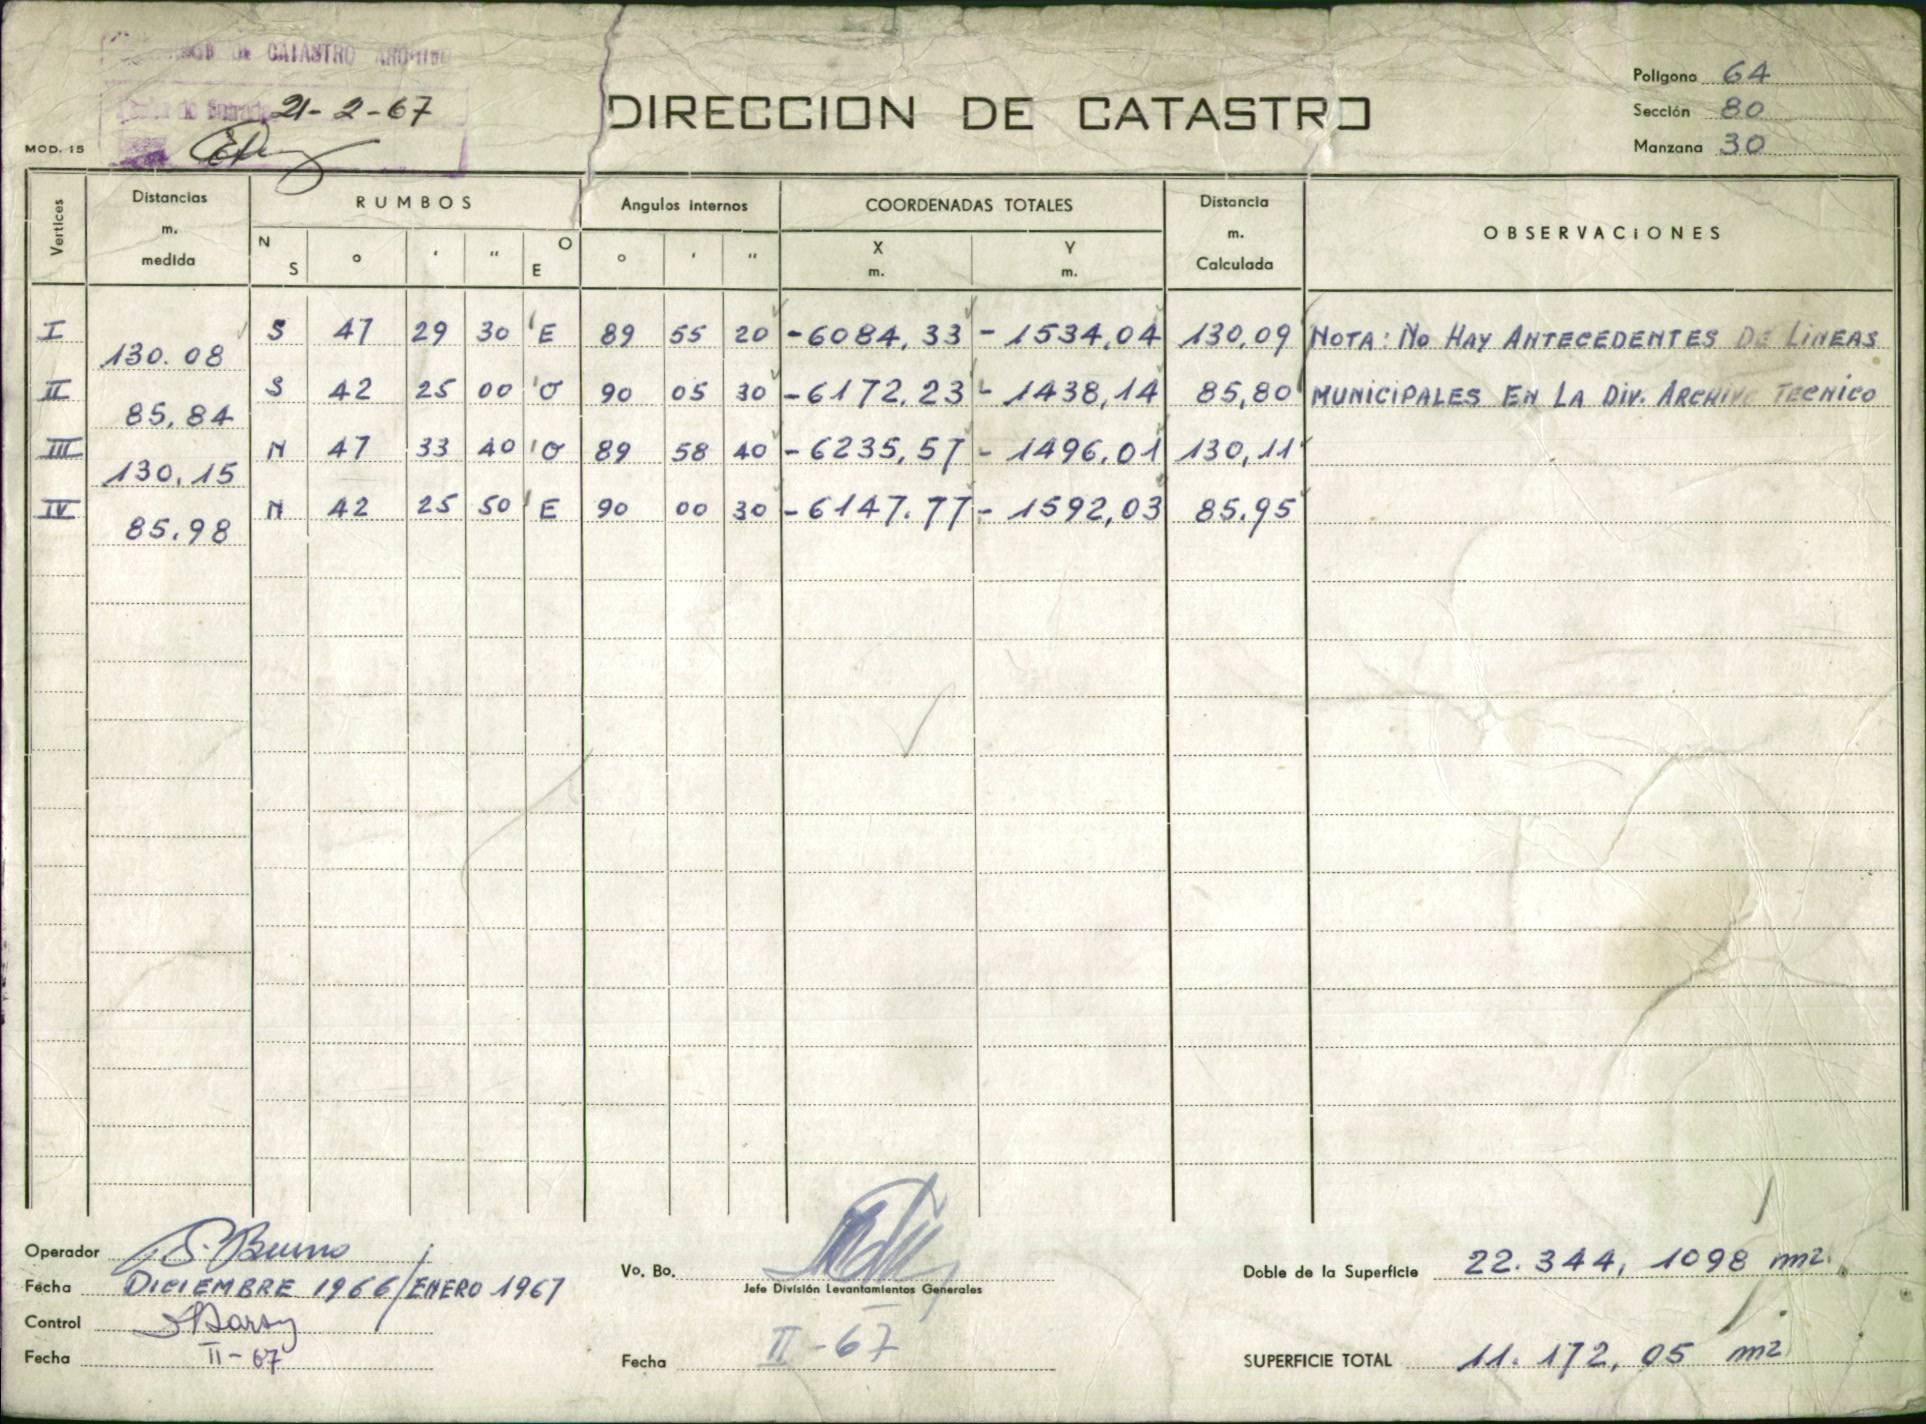 DE CATASTRO
21-2-67
DIRECCION DE CATASTRO
Polígono 64
Sección 80
Manzana 30
MOD. 15
Vertices
Distancias m. medida
RUMBOS
N S ° ' " O E
Angulos internos
° ' "
COORDENADAS TOTALES
X m. Y m.
Distancia m. Calculada
OBSERVACiONES
I 130.08 S 47 29 30 E 89 55 20 -6084,33 -1534,04 130,09 NOTA: No HAY ANTECEDENTES DE LiNEAS
II 85,84 S 42 25 00 O 90 05 30 -6172,23 -1438,14 85,80 MUNiCiPALES EN LA DiV. ARCHIVO TECNICO
III 130,15 N 47 33 40 O 89 58 40 -6235,57 -1496,01 130,11
IV 85.98 N 42 25 50 E 90 00 30 -6147.77 -1592,03 85.95
Operador
Fecha DICIEMBRE 1966/ENERO 1967
Control
Fecha II-67
Vo. Bo.
Jefe División Levantamientos Generales
Fecha II-67
Doble de la Superficie 22.344,1098 m2.
SUPERFICIE TOTAL 11.172,05 m2